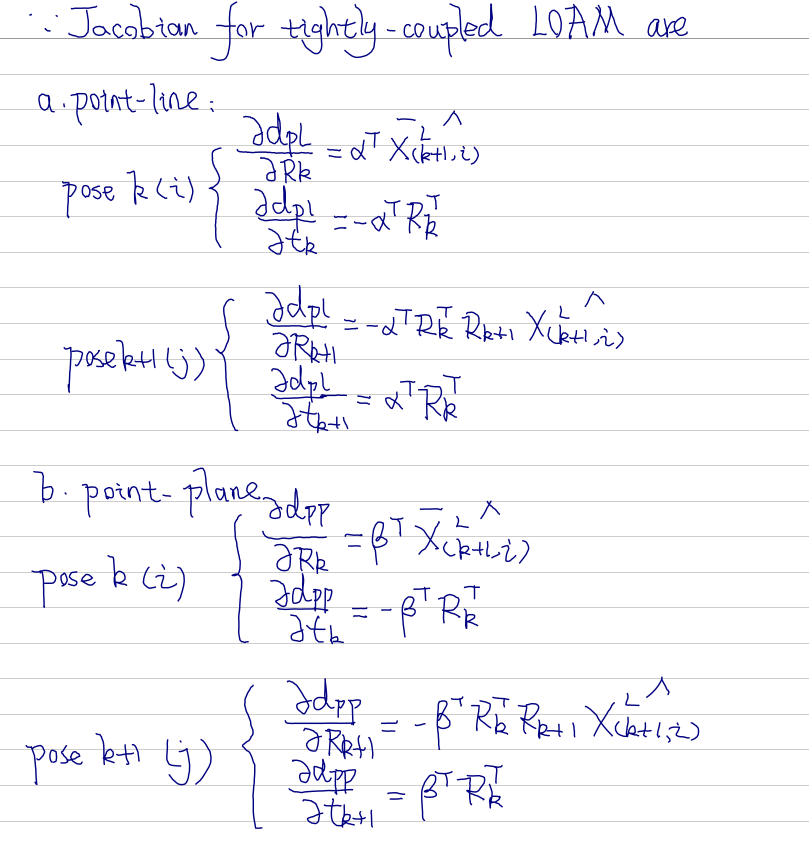 ∵ Jacobian for tightly-coupled LOAM are
a. point-line:
pose k (i) { ∂dpl/∂Rk = αᵀ X̄ᴸ(k+1,i)^
∂dpl/∂tk = -αᵀ Rkᵀ
pose k+1 (j) { ∂dpl/∂Rk+1 = -αᵀ Rkᵀ Rk+1 Xᴸ(k+1,i)^
∂dpl/∂tk+1 = αᵀ Rkᵀ
b. point-plane
pose k (i) { ∂dpp/∂Rk = βᵀ X̄ᴸ(k+1,i)^
∂dpp/∂tk = -βᵀ Rkᵀ
pose k+1 (j) { ∂dpp/∂Rk+1 = -βᵀ Rkᵀ Rk+1 Xᴸ(k+1,i)^
∂dpp/∂tk+1 = βᵀ Rkᵀ